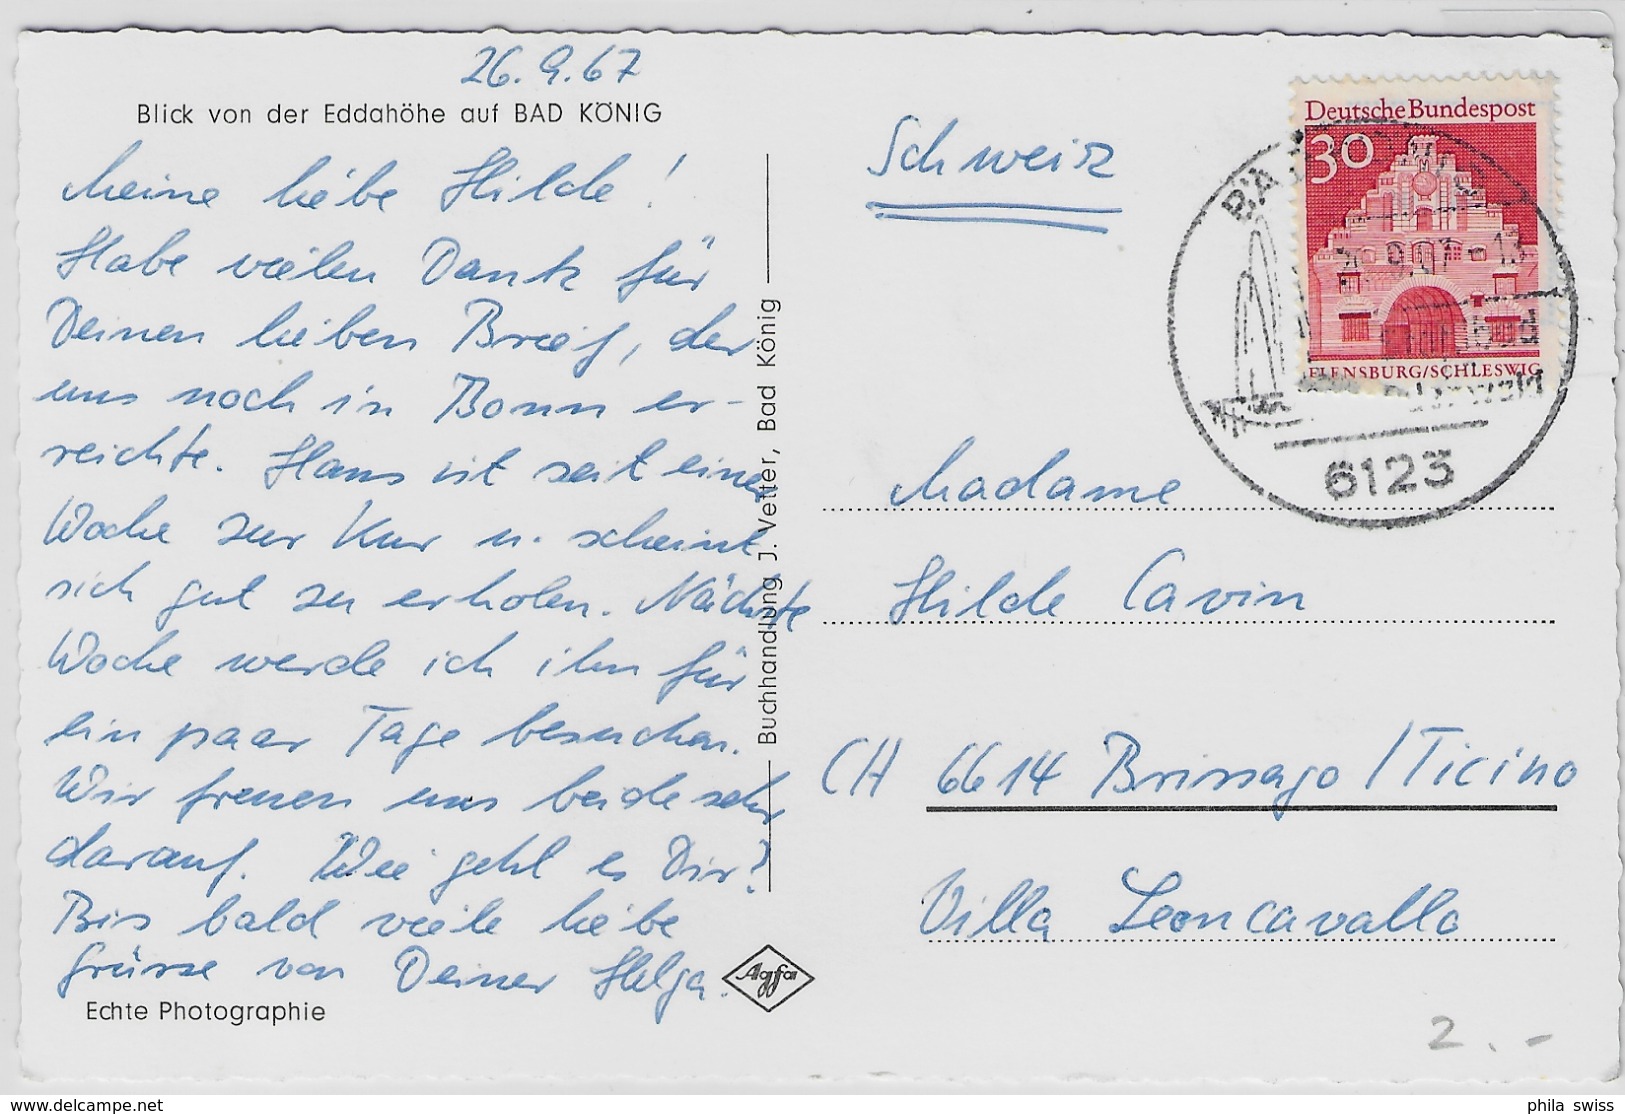 26.9.67
Blick von der Eddahöhe auf BAD KÖNIG
Meine liebe Hilde!
Habe vielen Dank für
Deinen lieben Brief, der
uns noch in Bonn er-
reichte. Hans ist seit einer
Woche zur Kur u. scheint
sich gut zu erholen. Nächste
Woche werde ich ihn für
ein paar Tage besuchen.
Wir freuen uns beide sehr
darauf. Wie geht es Dir?
Bis bald viele liebe
Grüsse von Deiner Helga.
Echte Photographie
Buchhandlung J. Vetter, Bad König
Agfa
Schweiz
Deutsche Bundespost
30
FLENSBURG/SCHLESWIG
BAD
6123
Madame
Hilde Cavin
CH 6614 Brissago / Ticino
Villa Leoncavallo
2.-
phila swiss
delcampe.net